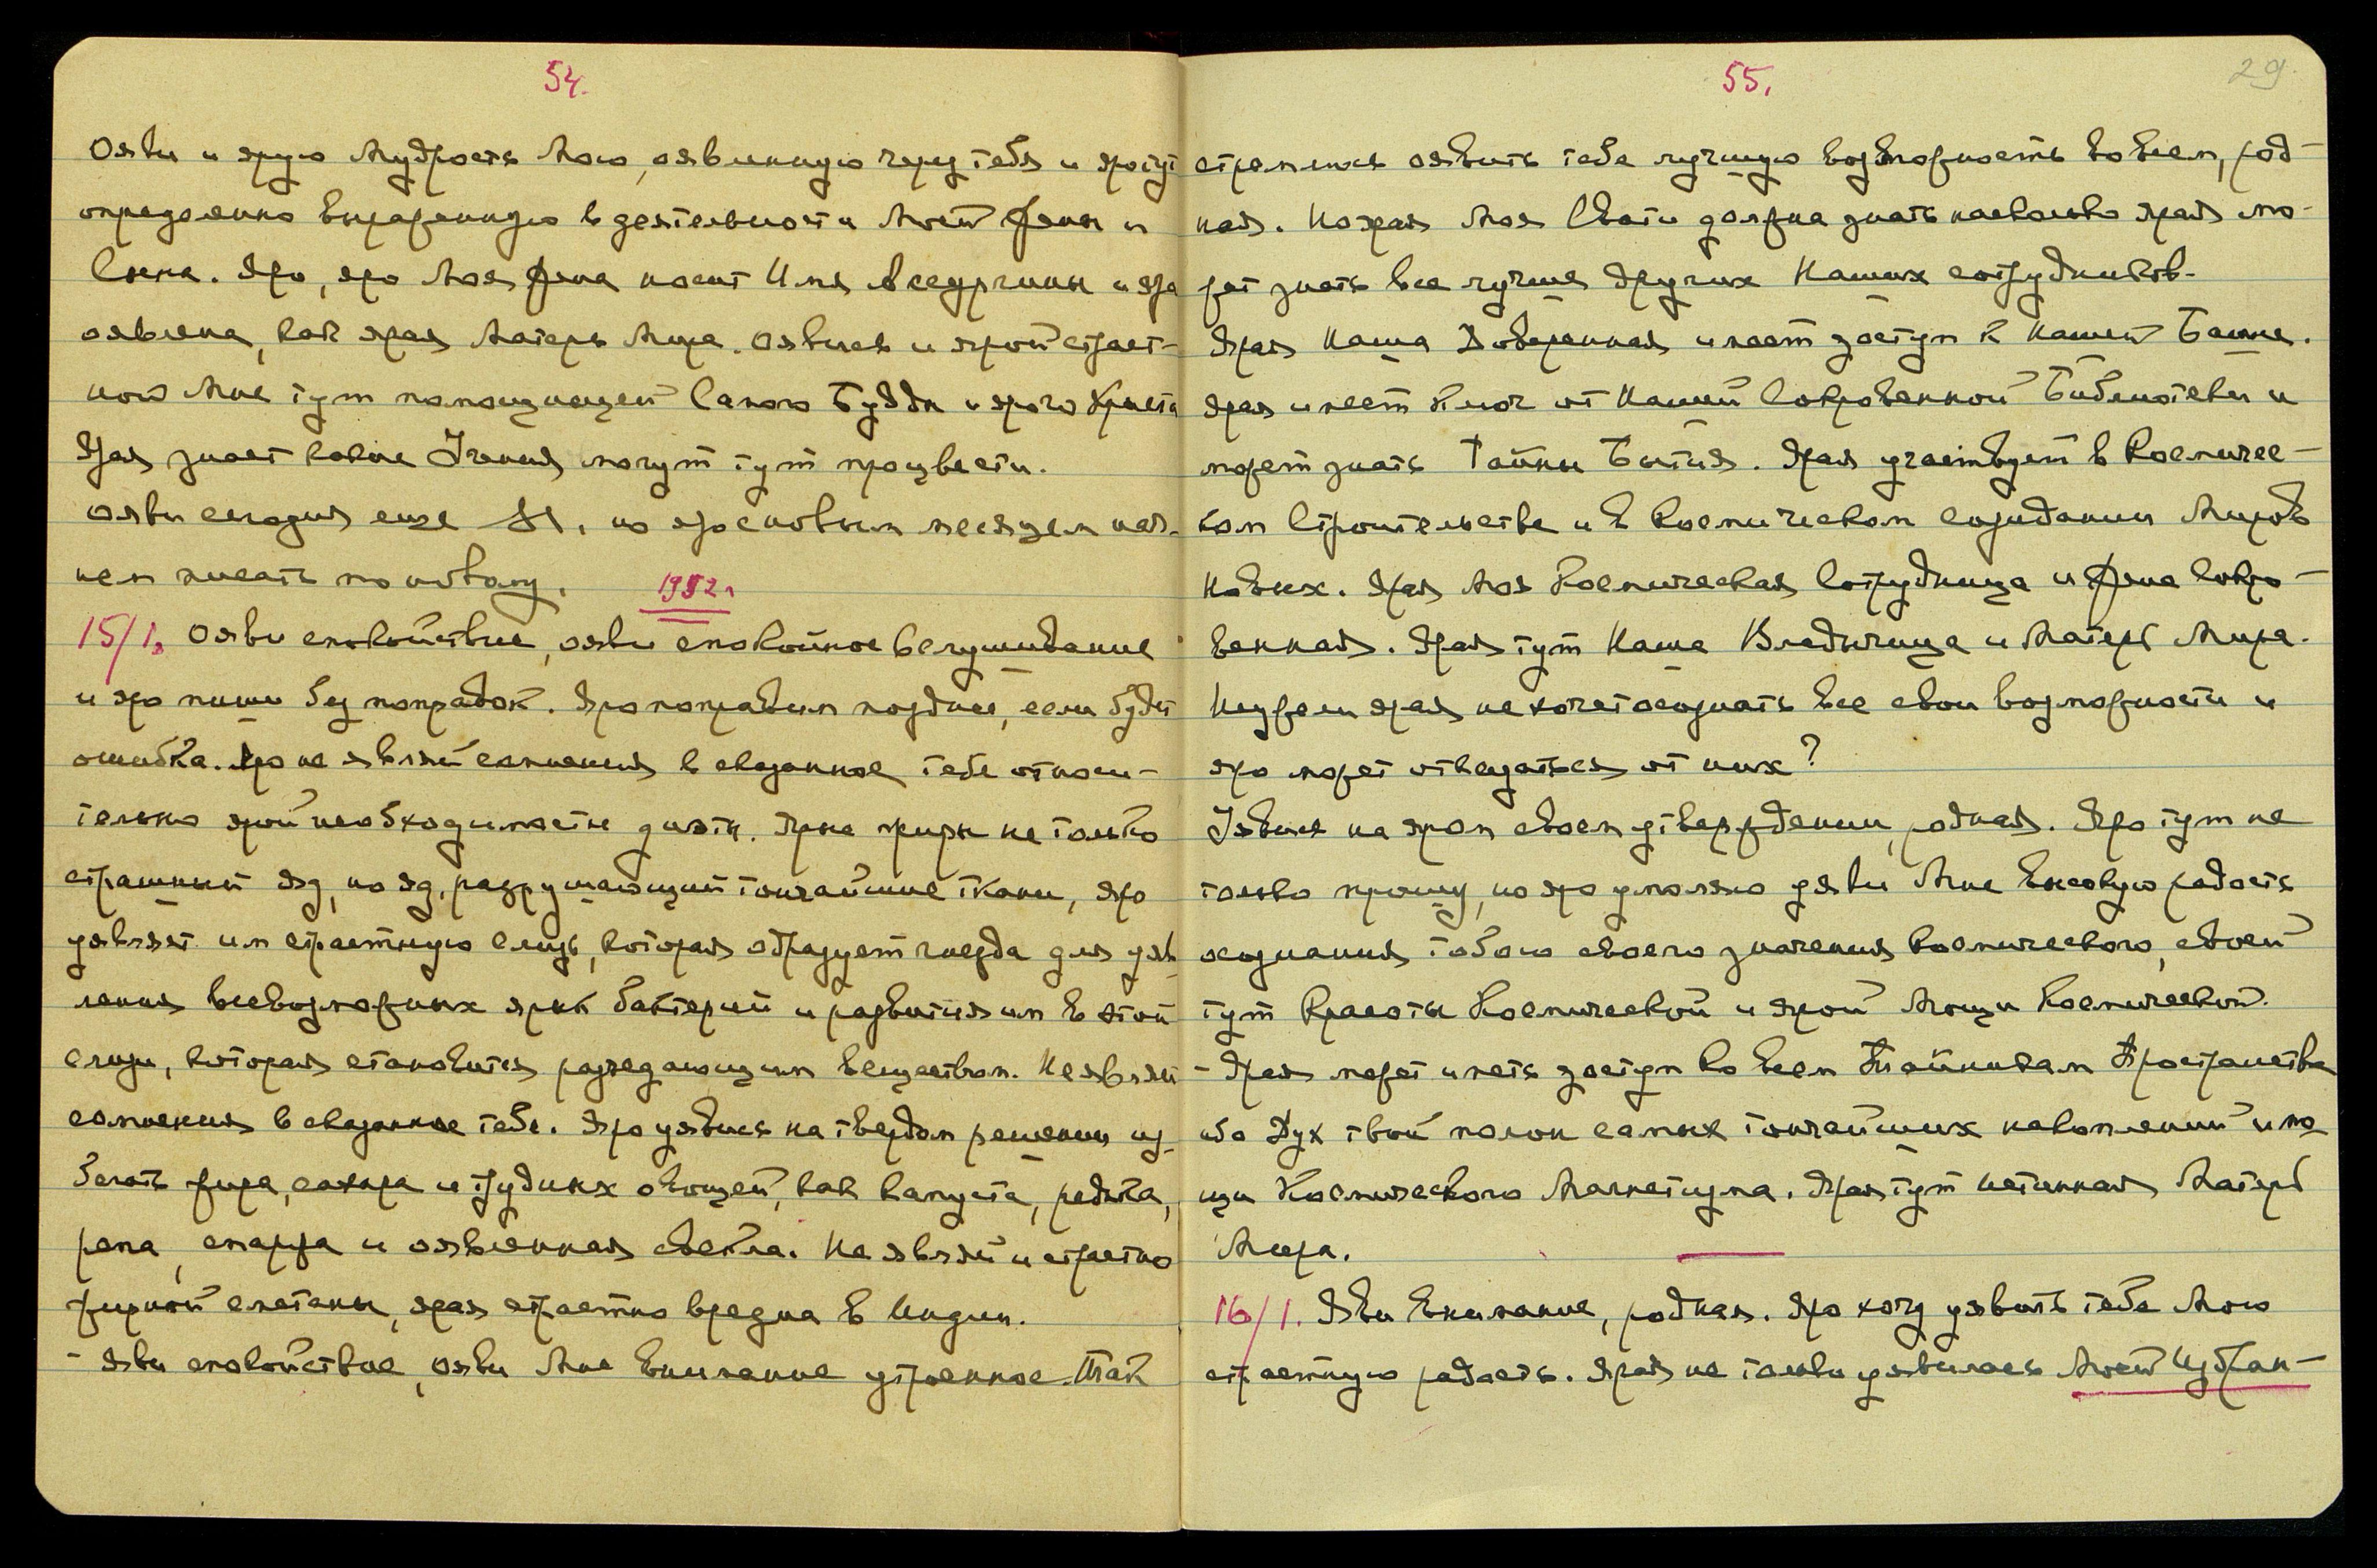 54.
Ояви и ярую Мудрость Мою, оявленную через тебя и яро тут
определенно выраженную в деятельности Моей Жены и
Сына. Яро, яро Моя Жена носит Имя Вседержицы и яро
оявлена, как ярая Матерь Мира. Оявись и ярой страст-
ной Мне тут помощницей Самого Будды и ярого Христа
Ярая знает какие Учения могут тут процвести.
Ояви сегодня еще Я, но яро с новым месяцем нач-
нем писать по новому. 1952 г.
15/1. Ояви спокойствие, ояви спокойное вслушивание
и яро пиши без поправок. Яро поправим позднее, если будет
ошибка. Яро не являй сомнения в сказанное тебе относи-
тельно ярой необходимости диэты. Ярые жиры не только
страшный яд, но яд, разрушающий тончайшие ткани, яро
уявляет им страстную слизь, которая образует гнезда для уяв-
ления всевозможных ярых бактерий и развития им в этой
слизи, которая становится разъедающим веществом. Не являй
сомнения в сказанное тебе. Яро уявись на твердом решении из-
бегать жира, сахара и трудных овощей, как капуста, редька,
репа, спаржа и оявленная свекла. Не являй и страстно
жирной сметаны, ярая страстно вредна в Индии.
- Яви спокойствие, ояви Мне внимание утроенное. Так
55.
29.
стремлюсь оявить тебе лучшую возможность во всем, род-
ная. Но ярая Моя Свати должна знать насколько ярая мо-
жет знать все лучше других Наших сотрудников.
Ярая Наша Доверенная имеет доступ к Нашей Башне.
Ярая имеет Ключ от Нашей Сокровенной Библиотеки и
может знать Тайны Бытия. Ярая участвует в Космичес-
ком Строительстве и в Космическом созидании Миров
Новых. Ярая Моя Космическая Сотрудница и Жена Сокро-
венная. Ярая тут Наша Владычица и Матерь Мира.
Неужели ярая не хочет осознать все свои возможности и
яро может отказаться от них?
Уявись на яром своем утверждении, родная. Яро тут не
только прошу, но яро умоляю уяви Мне высокую радость
осознания тобою своего значения космического, своей
тут Красоты Космической и ярой Мощи Космической.
- Ярая может иметь доступ ко всем Тайникам Пространства
ибо Дух твой полон самых тончайших накоплений и мо-
щи Космического Магнетизма. Ярая тут истинная Матерь
Мира.
16/1. Яви внимание, родная. Яро хочу уявить тебе Мою
страстную радость. Ярая не только уявилась Моей Избран-